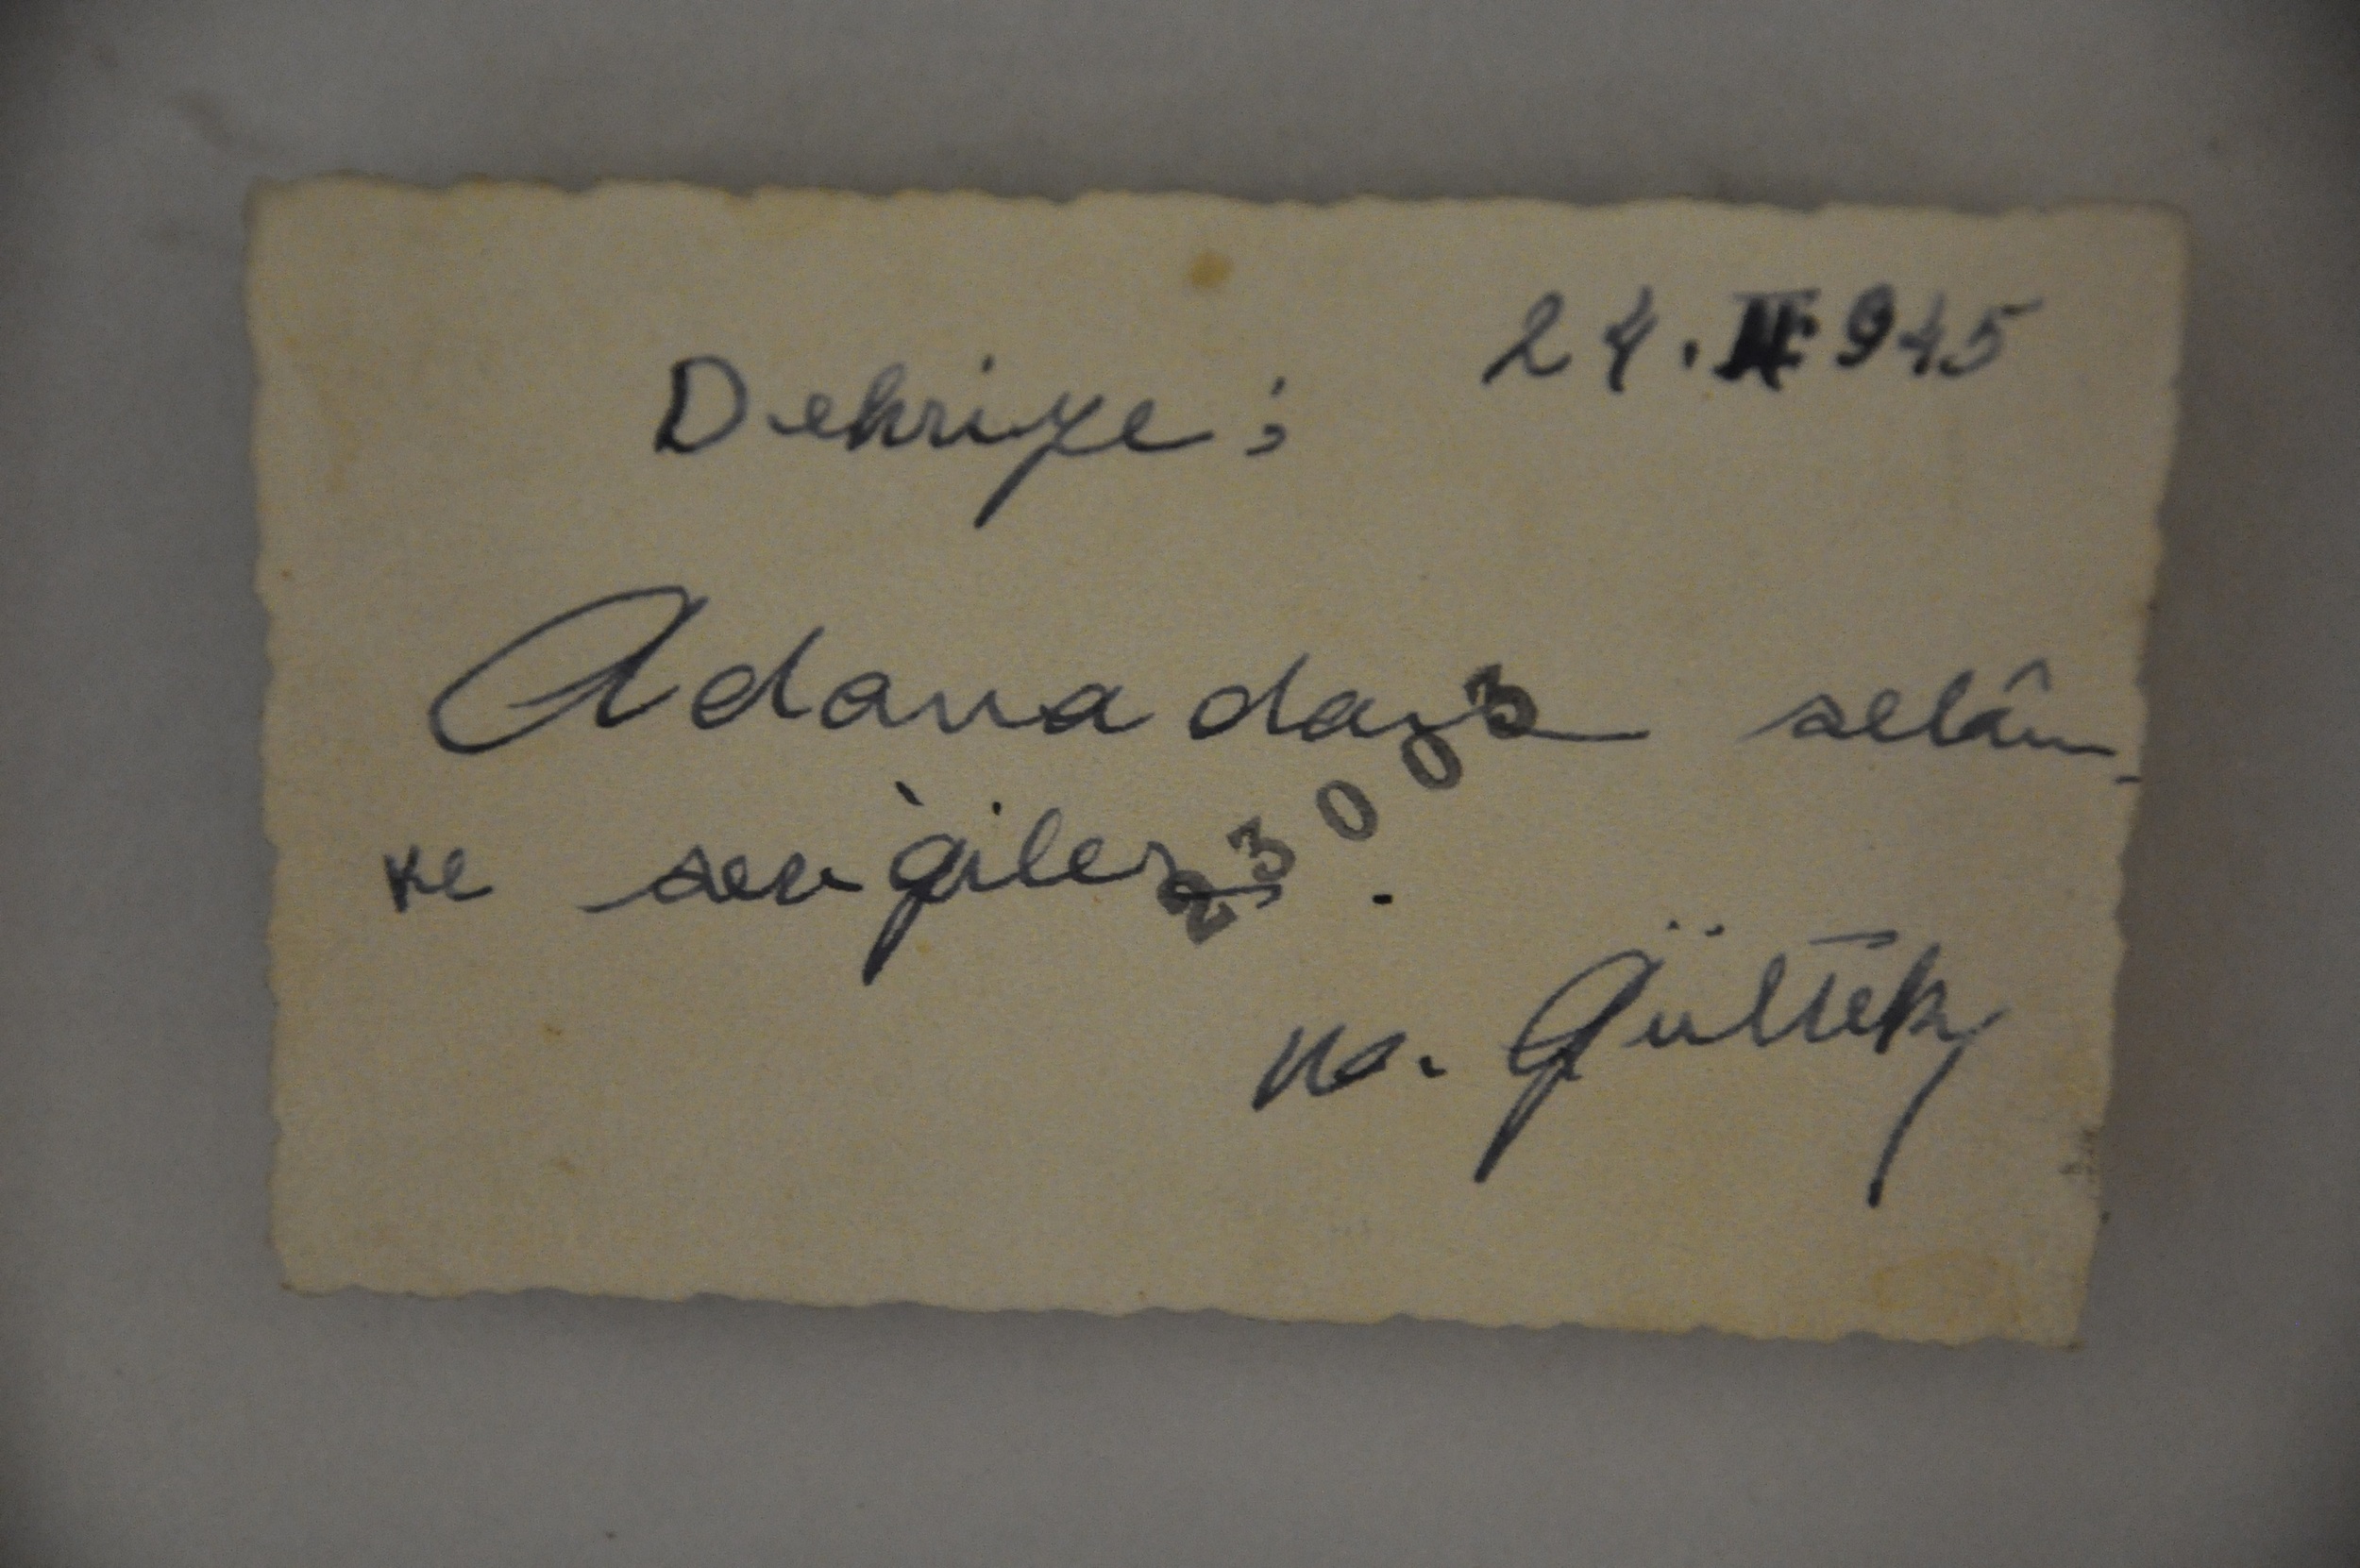 24.II.945
Dehriye;
Adanadan selâm
ve sevgiler.
23003
M. Gültek